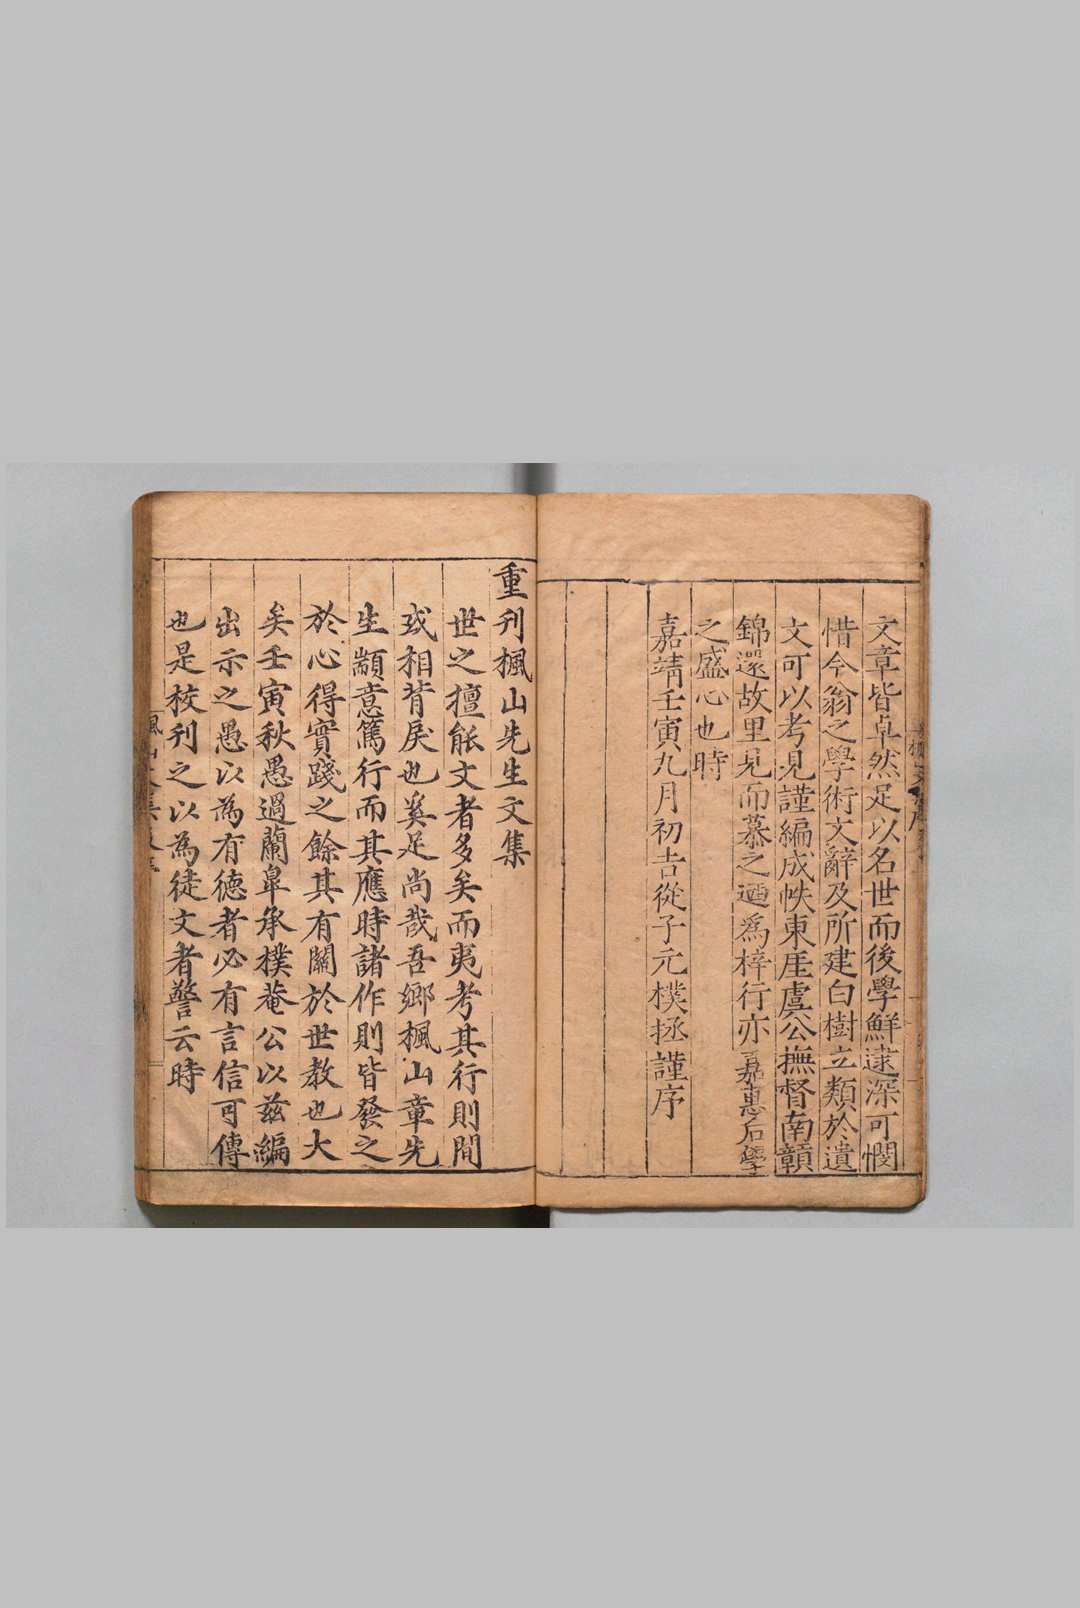 文章皆卓然足以名世而後學鮮逮深可憫
惜今翁之學術文辭及所建白樹立類於遺
文可以考見謹編成帙東厓虞公撫督南贛
錦還故里見而慕之迺為梓行亦嘉惠后學
之盛心也時
嘉靖壬寅九月初吉從子元樸拯謹序
重刊楓山先生文集
世之擅能文者多矣而夷考其行則間
或相背戾也奚足尚哉吾鄉楓山章先
生顓意篤行而其應時諸作則皆發之
於心得實踐之餘其有關於世教也大
矣壬寅秋愚過蘭皋承樸菴公以茲編
出示之愚以為有德者必有言信可傳
也是校刊之以為徒文者警云時